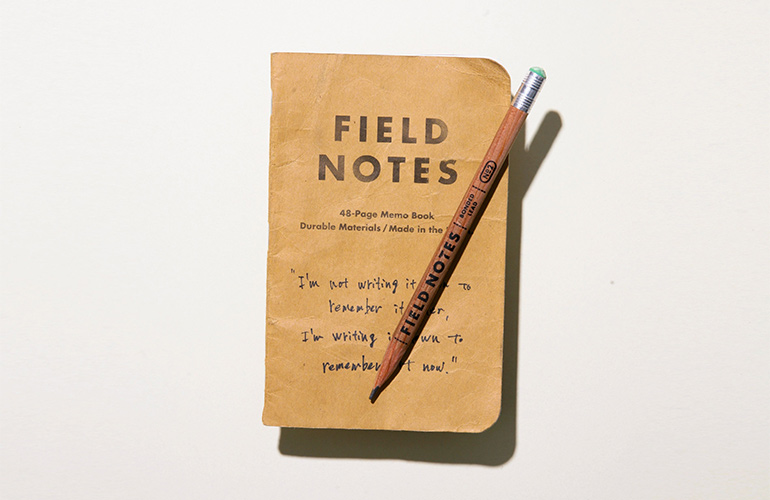 FIELD
NOTES
48-Page Memo Book
Durable Materials / Made in the
"I'm not writing it to
remember it
I'm writing to
remember now."
FIELD NOTES BONDED LEAD No2